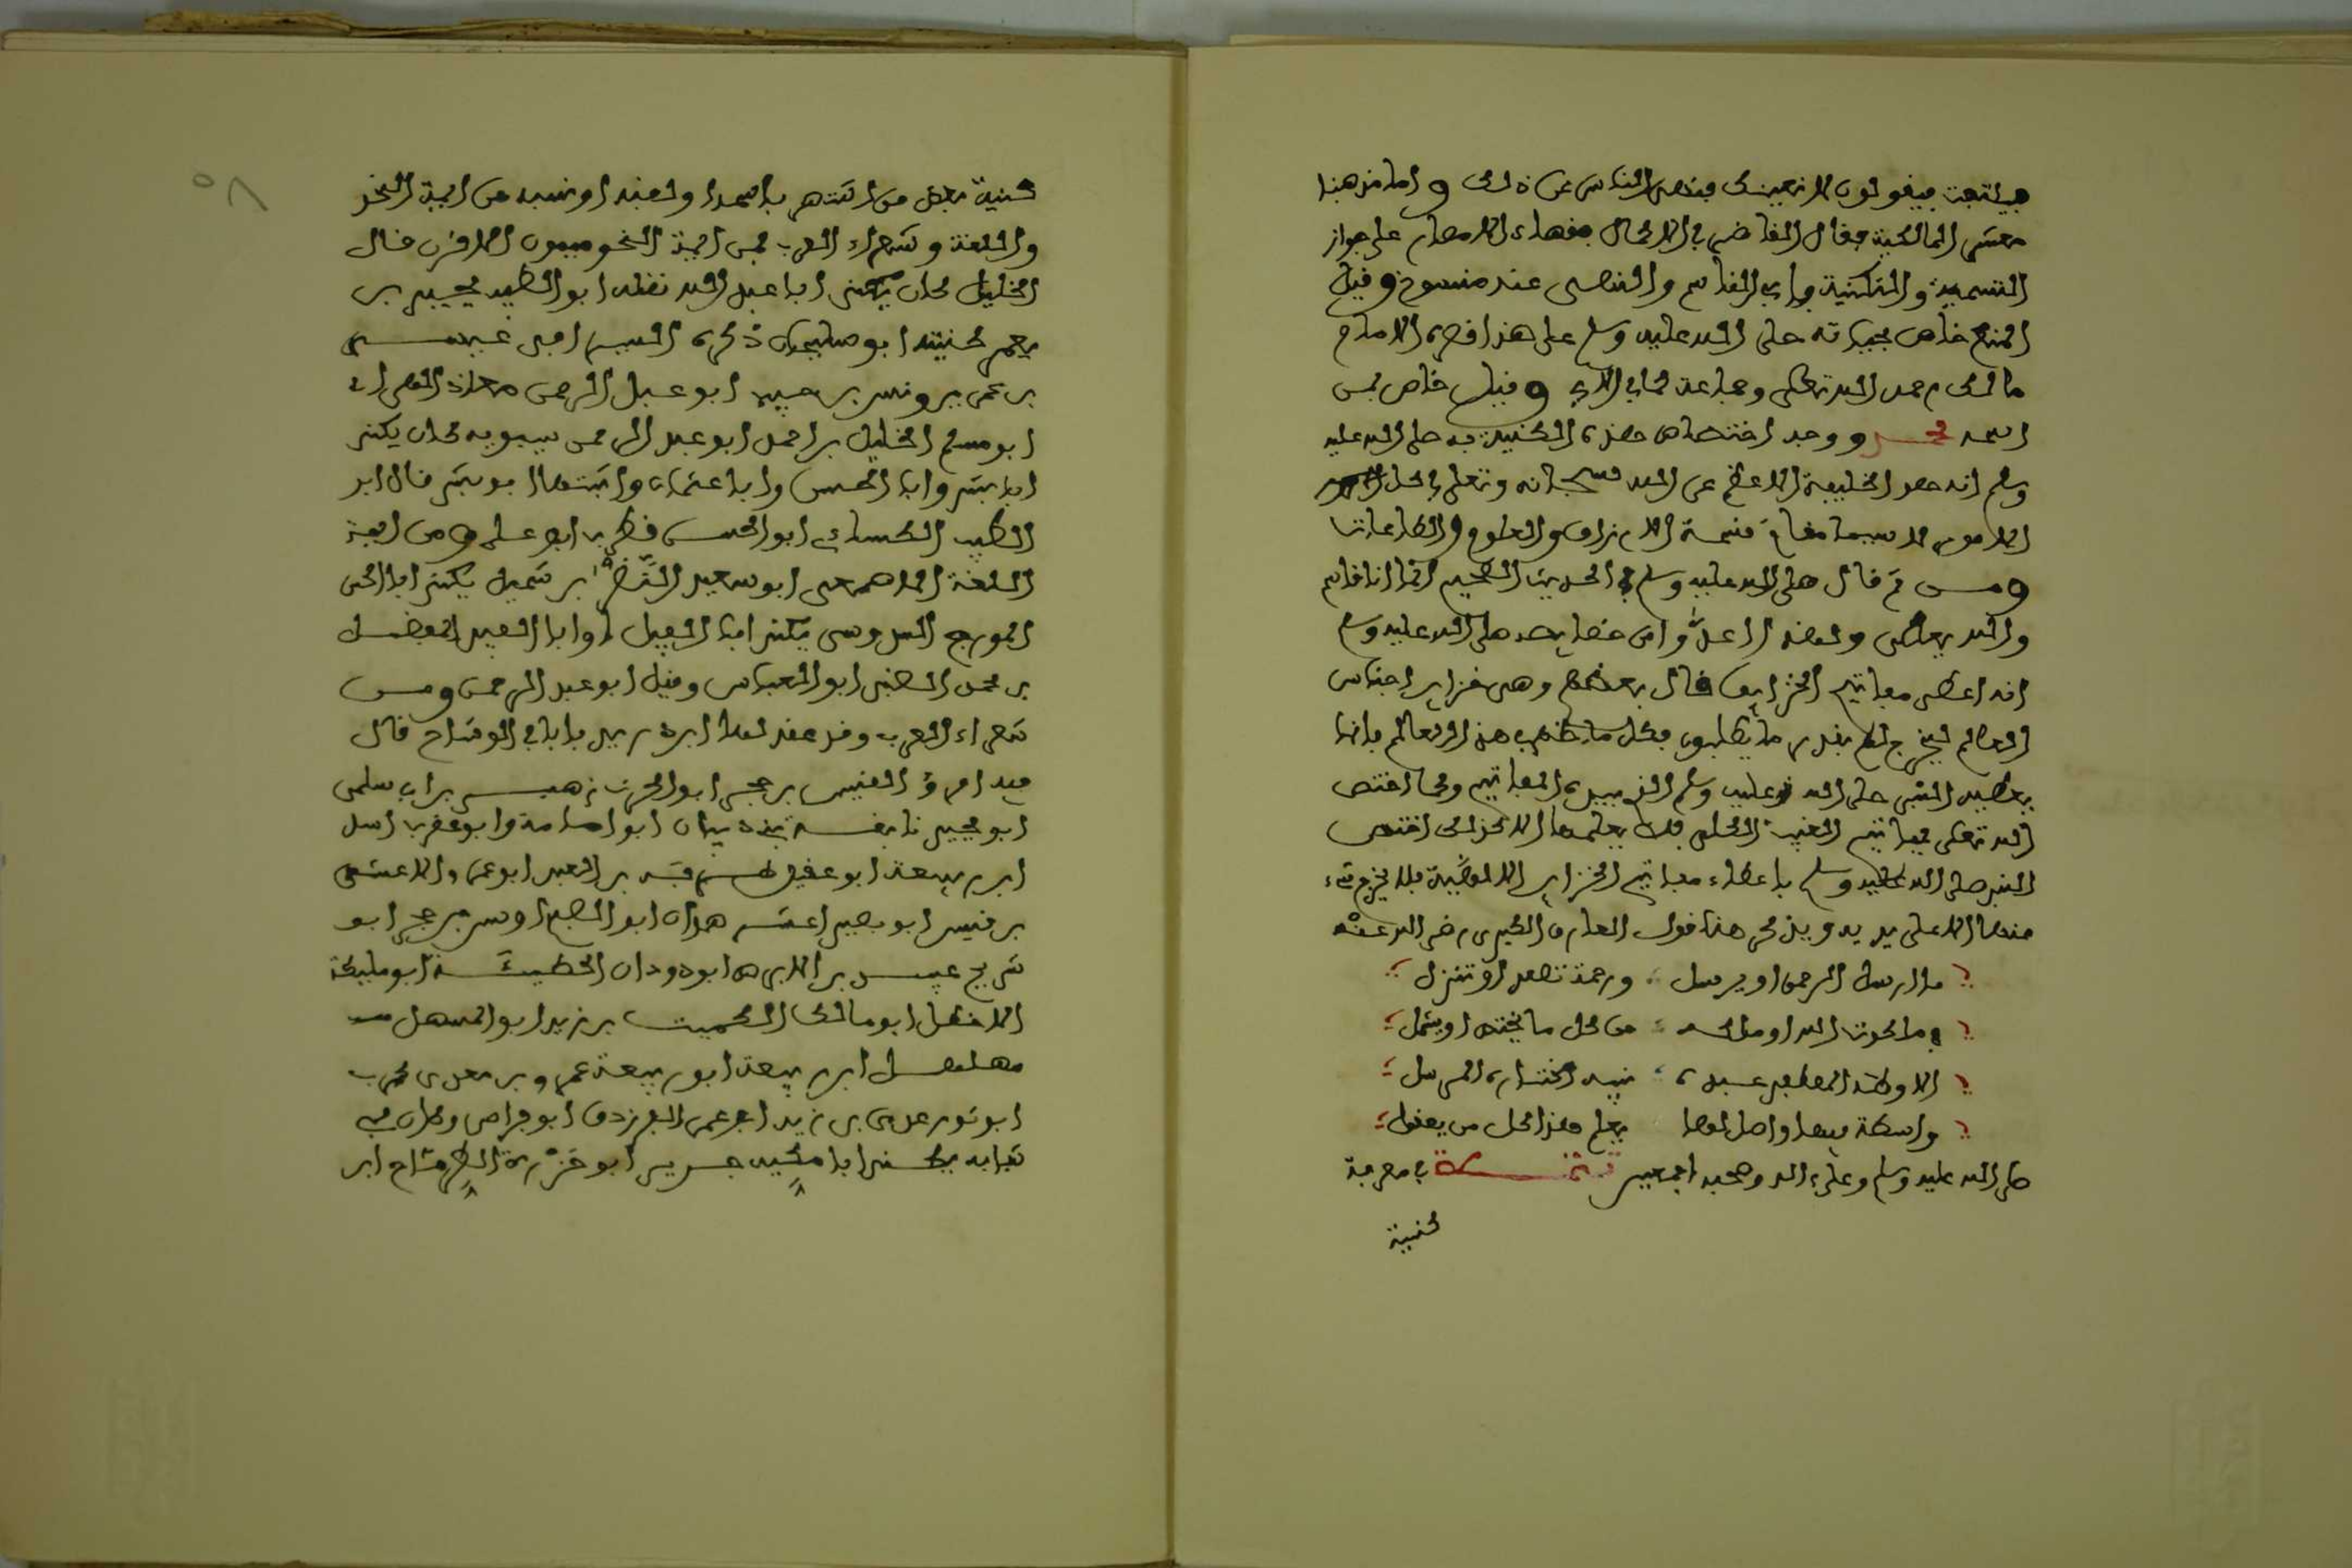 فيلتفت فيقولون لا نعنيك فنهى الناس عن ذلك واما مذهبنا
معشر المالكية فقال القاضي في الاكمال فقهاء الامصار على جواز
التسمية والتكنية بابي القاسم والنهي عنه منسوخ وقيل
المنع خاص بحياته صلى الله عليه وسلم على هذا اقصره الامام
مالك رحمه الله تعالى وجماعة كما في الابي وقيل خاص بمن
اسمه محمد ووجه اختصاص هذه الكنية به صلى الله عليه
وسلم انه هو الخليفة الاعظم عن الله سبحانه وتعالى في كل
الامور لا سيما مقام قسمة الارزاق والعلوم والطاعات
ومن ثم قال صلى الله عليه وسلم في الحديث الصحيح انما انا قاسم
والله يعطي ولهذا عدوا من خصايصه صلى الله عليه وسلم
انه اعطي مفاتيح الخزاين قال بعضهم وهي خزاين اجناس
العالم ليخرج لهم بقدر ما يطلبون فكل ما ظهر في هذا العالم فانما
يعطيه النبي صلى الله عليه وسلم الذي بيده المفاتيح وكما اختص
الله تعالى بمفاتيح الغيب الكلي فلا يعلمها الا هو كذلك اختص
النبي صلى الله عليه وسلم باعطاء مفاتيح الخزاين الالهية فلا يخرج شيء
منها الا على يديه ويذكر هنا قول العارف البكري رضي الله عنه
ما ارسل الرحمن او يرسل ؛ ورحمة تصعد او تنزل
في ملكوت الله او ملكه ؛ من كل ما يختص او يشمل
الا وطه المصطفى عبده ؛ نبيه مختاره المرسل
واسطة فيها واصل لها يعلم هذا كل من يعقل
صلى الله عليه وسلم وعلى اله وصحبه اجمعين تتمة في معرفة
كنية
٥٨
كنية بعض من اشتهر باسمه او لقبه او نسبه من ايمة النحو
واللغة وشعراء العرب فمن ايمة النحو ميمون الاقرن قال
الخليل كان يكنى ابا عبد الله نقله ابو الطيب يحيى بن
يعمر كنيته ابو سليمان ذكره السيرافي عيسى
بن عمر يونس بن حبيب ابو عبد الرحمن معاذ الهراء
ابو مسلم الخليل بن احمد ابو عبد الرحمن سيبويه كان يكنى
ابا بشر وابا الحسن وابا عثمان واثبتها ابو بشر قال ابو
الطيب الكسائي ابو الحسن قطرب ابو علي ومن ايمة
اللغة الاصمعي ابو سعيد النضر بن شميل يكنى ابا الحسن
المورج السدوسي يكنى ابا الفيل وابا الفيد المفضل
بن محمد الضبي ابو العباس وقيل ابو عبد الرحمن ومن
شعراء العرب وقد عقد لها ابن دريد بابا في الوشاح قال
فيه امرؤ القيس بن حجر ابو الحرث زهير بن ابي سلمى
ابو بجير نابغة بني ذبيان ابو امامة وابو عقرب
ابن ربيعة ابو عقيل طرفة بن العبد ابو عمرو الاعشى
بن قيس ابو بصير اعشى همدان ابو المصبح اوس بن حجر ابو
شريح عبيد بن الابرص ابو دودان الحطيئة ابو مليكة
الاخطل ابو مالك الكميت بن زيد ابو المستهل
مهلهل ابن ربيعة ابو ربيعة عمرو بن معدي كرب
ابو ثور عدي بن زيد ابو عمير الفرزدق ابو فراس وكان في
شبابه يكنى ابا مكية جرير ابو حزرة الطرماح ابو